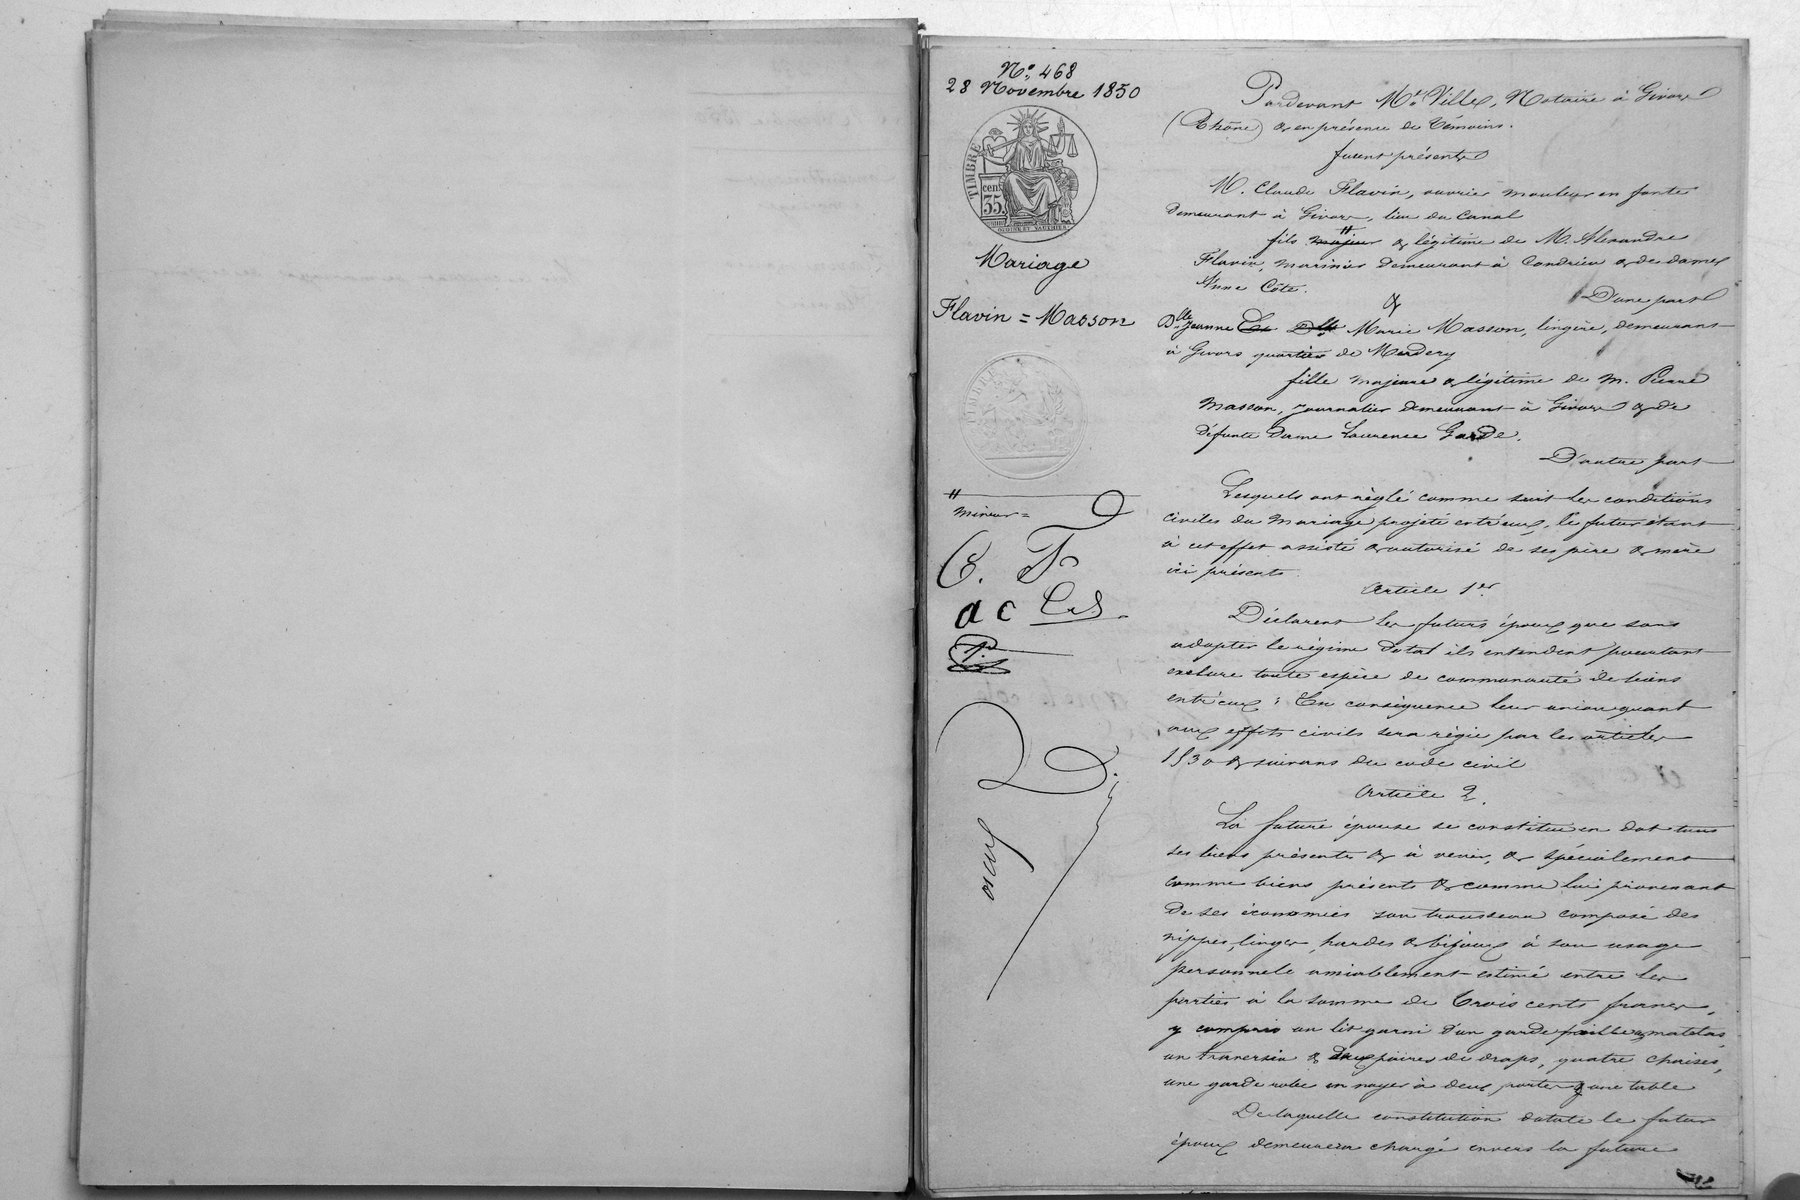 N° 468
28 Novembre 1850
TIMBRE
cent.
35.
Mariage
Flavin = Masson
TIMBRE
mineur =
C. F
a c
Pardevant Me Ville, Notaire à Givors
(Rhône) & en présence de témoins.
furent présents
M. Claude Flavin, ouvrier mouleur en fonte
demeurant à Givors, lieu du Canal
fils majeur & légitime de M. Alexandre
Flavin, marinier demeurant à Condrieu & de dame
Anne Côte.
D'une part
&
Dlle Jeanne Et Dlle Marie Masson, lingère, demeurant
à Givors quartier de
fille majeure & légitime de m. Pierre
Masson, journalier demeurant à Givors & de
défunte dame Laurence Garde.
D'autre part
Lesquels ont réglé comme suit les conditions
civiles du mariage projeté entr'eux, le futur étant
à cet effet assisté & autorisé de ses père & mère
ici présents.
Article 1er
Déclarent les futurs époux que sans
adopter le régime dotal ils entendent pourtant
exclure toute espèce de communauté de biens
entr'eux ; En conséquence leur union quant
aux effets civils sera régie par les articles
1530 & suivans du code civil
Article 2.
La future épouse se constitue en dot tous
ses biens présents & à venir, & spécialement
comme biens présents & comme lui provenant
de ses économies son trousseau composé des
nippes, linges, hardes & bijoux à son usage
personnele amiablement estimé entre les
parties à la somme de trois cents francs,
y compris un lit garni d'un garde paille & matelas,
un traversin & deux paires de draps, quatre chaises,
une garde robe en noyer à deux portes & une table
De laquelle constitution dotale le futur
époux demeurera chargé envers la future